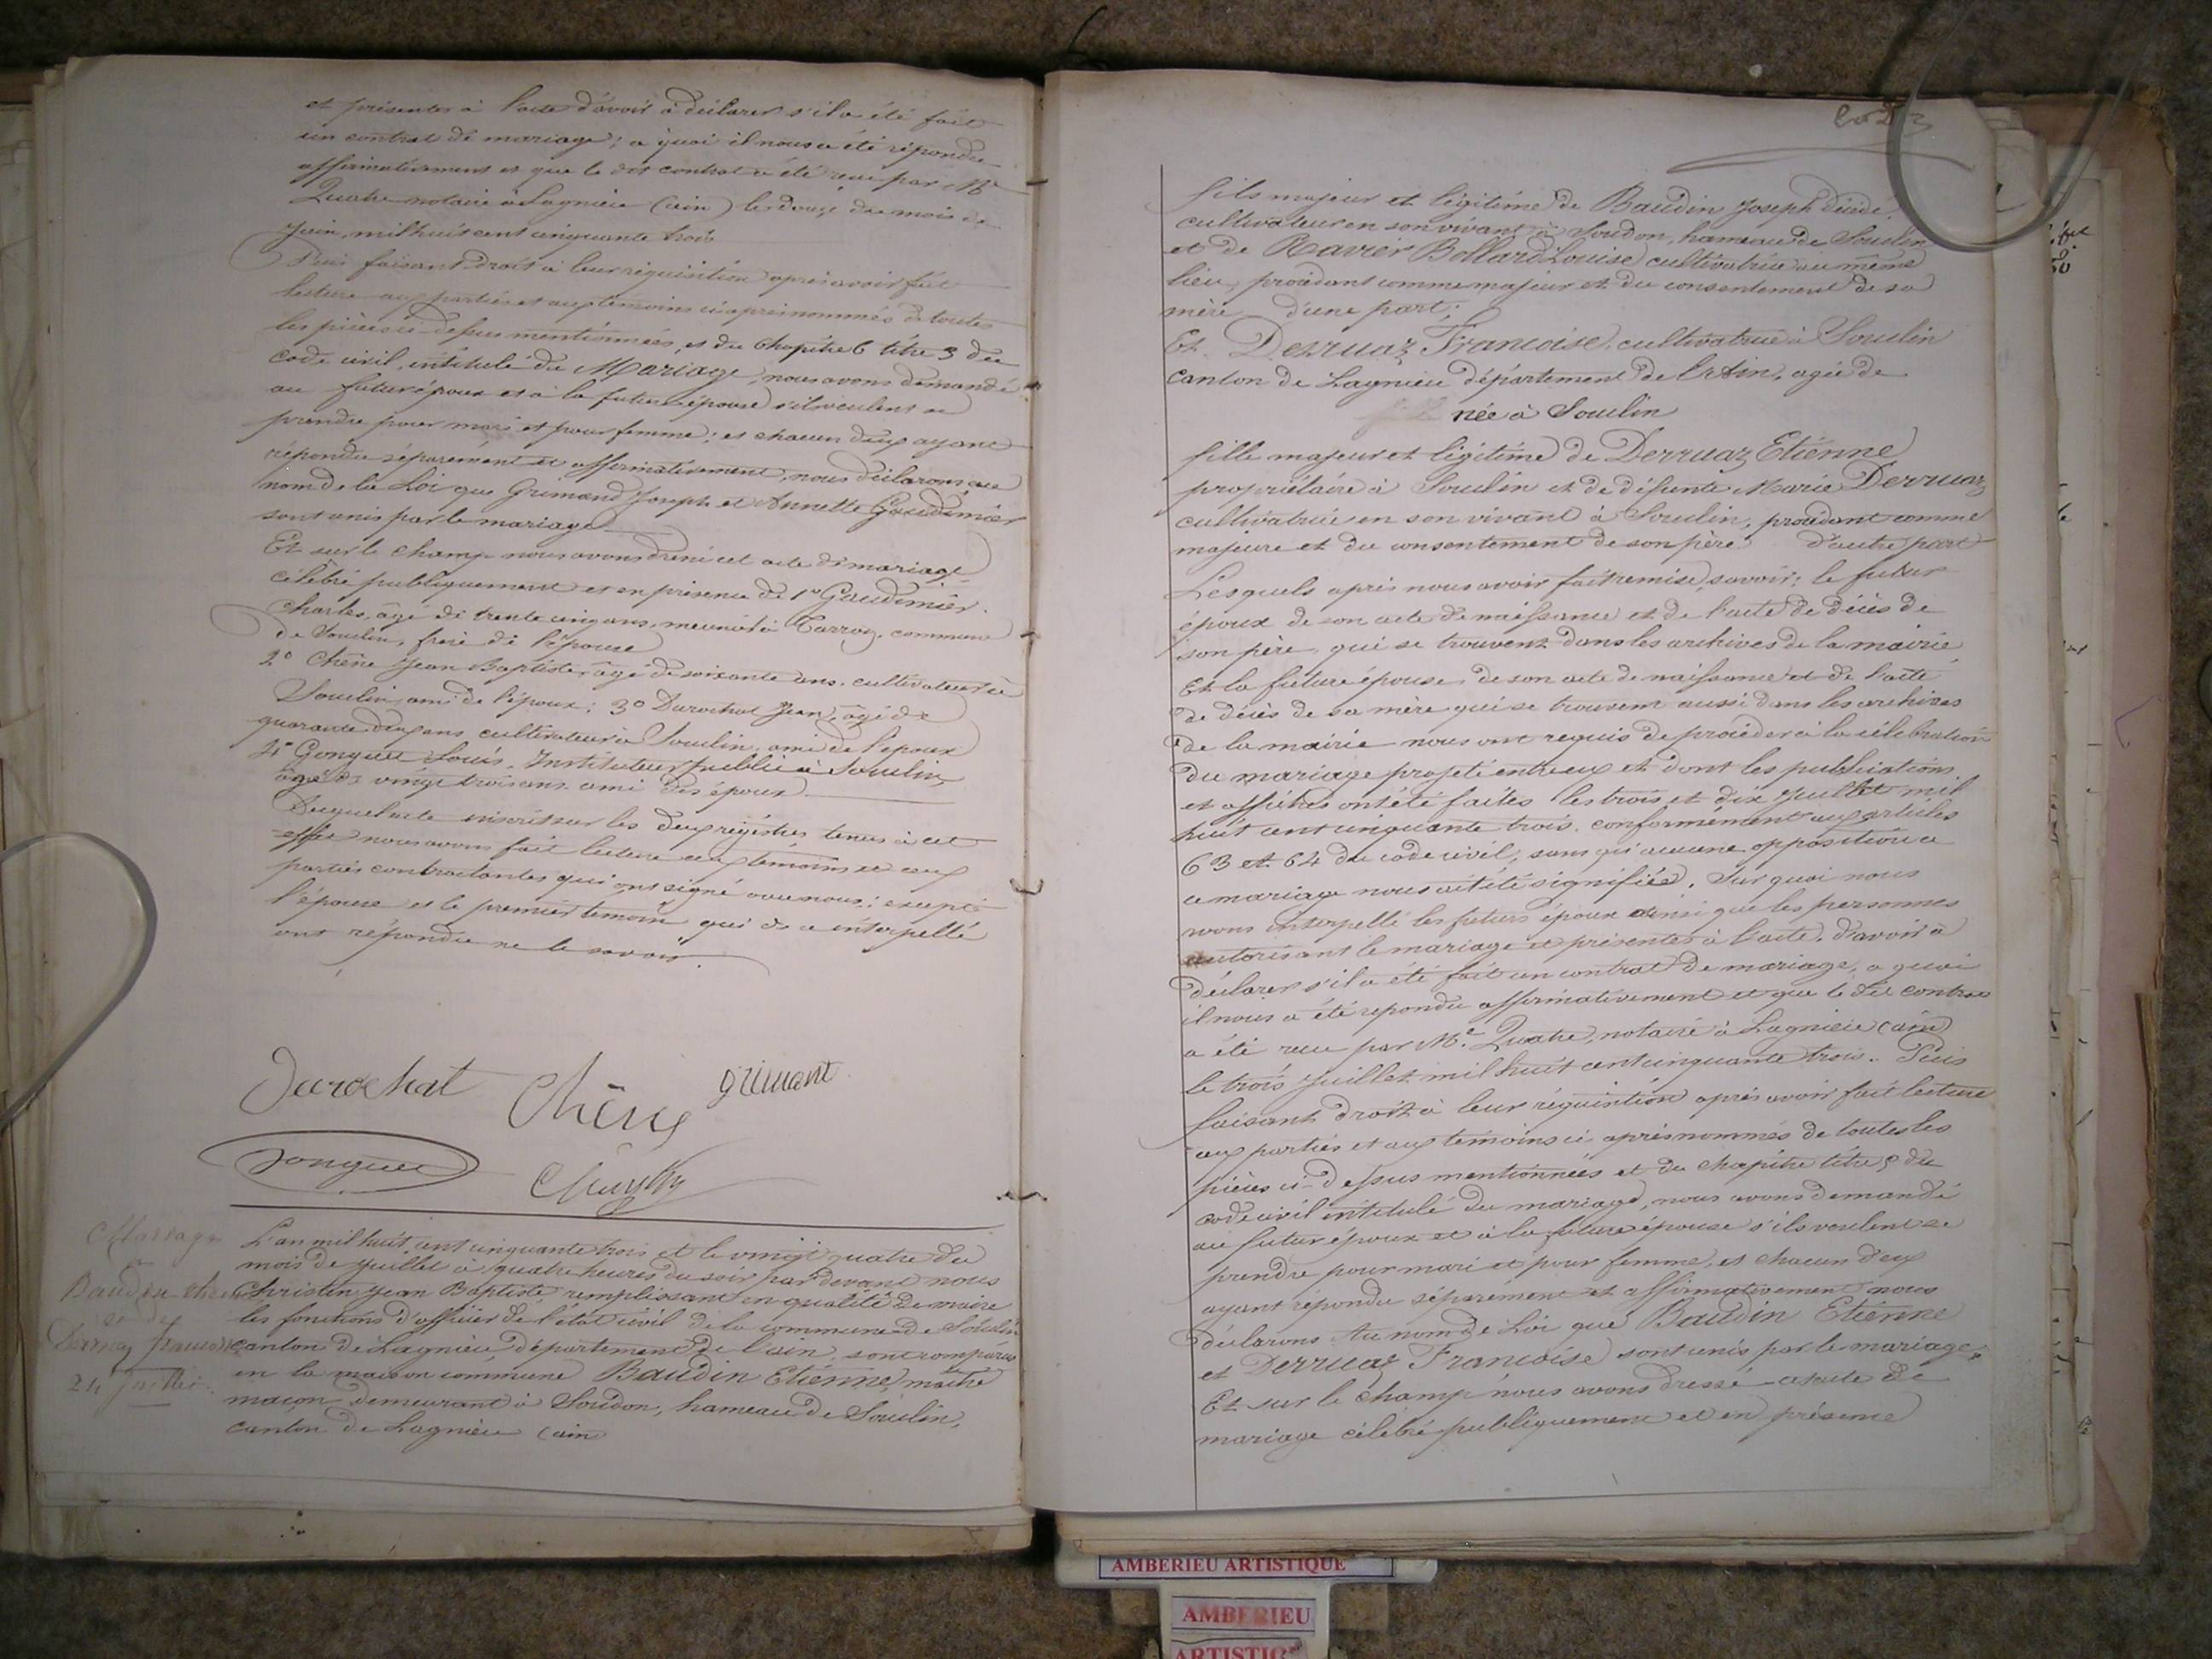 et présentes à l'acte d'avoir à déclarer s'il a été fait
un contrat de mariage; a quoi il nous a été répondu
affirmativement et que le dit contrat a été reçu par Me
Quatre notaire à Lagnieu (ain) le douze du mois de
juin, mil huit cent cinquante trois
Puis faisant droit à leur réquisition après avoir fait
lecture aux parties et aux témoins ci après nommés de toutes
les pièces ci-dessus mentionnées, et du Chapitre 6 titre 5 du
code civil, intitulé du Mariage, nous avons demandé
au futur époux et à la future épouse s'ils veulent se
prendre pour mari et pour femme; et chacun d'eux ayant
répondu séparément et affirmativement, nous déclarons au
nom de la Loi que Grimand Joseph et Annette Gaudimier
sont unis par le mariage
Et sur le champ nous avons dressé cet acte de mariage
célébré publiquement et en présence de 1° Gaudimier
Charles, âgé de trente cinq ans, meunier à commune
de Souclin, frère de l'épouse
2° Chêne Jean Baptiste, âgé de soixante ans, cultivateur à
Souclin, ami de l'époux; 3° Durochat Jean, âgé de
quarante deux ans cultivateur à Souclin, ami de l'époux
4° Gonguet Louis, Instituteur public à Souclin,
âgé de vingt trois ans ami des époux
Duquel acte inscrit sur les deux registres tenus à cet
effet nous avons fait lecture aux témoins et aux
parties contractantes qui ont signé avec nous; excepté
l'épouse et le premier témoin qui de ce interpellé
ont répondu ne le savoir.
Durochat Chêne grimant
Gonguet
Mariage
Baudin
et de
24 juillet
L'an mil huit cent cinquante trois et le vingt quatre du
mois de juillet à quatre heures du soir par devant nous
Christin Jean Baptiste remplissant en qualité de maire
les fonctions d'officier de l'état civil de la commune de Souclin
canton de Lagnieu, département de l'ain, sont comparus
en la maison commune Baudin Etienne, maître
maçon demeurant à Soudon, hameau de Souclin,
canton de Lagnieu (ain)
fils majeur et légitime de Baudin Joseph décédé,
cultivateur en son vivant à Soudon, hameau de Souclin
et de Ravier Bollard Louise cultivatrice au même
lieu, procédant comme majeur et du consentement de sa
mère d'une part;
Et Derruaz Francoise, cultivatrice à Souclin
canton de Lagnieu département de l'Ain, agée de
née à Souclin
fille majeur et légitime de Derruaz Etienne
propriétaire à Souclin et de défunte Marie Derruaz
cultivatrice en son vivant à Souclin, procédant comme
majeure et du consentement de son père d'autre part
Lesquels après nous avoir fait remise, savoir: le futur
époux de son acte de naissance et de l'acte de décès de
son père, qui se trouvent dans les archives de la mairie
Et la future épouse, de son acte de naissance et de l'acte
de décès de sa mère qui se trouvent aussi dans les archives
de la mairie nous ont requis de procéder à la célébration
du mariage projeté entr'eux et dont les publications
et affiches ont été faites les trois et dix juillet mil
huit cent cinquante trois, conformément aux articles
63 et 64 du code civil, sans qu'aucune opposition a
ce mariage nous ait été signifiée. Sur quoi nous
avons interpellé les futurs époux ainsi que les personnes
autorisant le mariage et présentes à l'acte, d'avoir à
déclarer s'il a été fait un contrat de mariage, a quoi
il nous a été repondu affirmativement et que le dit contrat
a été reçu par Me Quatre, notaire à Lagnieu (ain)
le trois juillet mil huit cent cinquante trois. Puis
faisant droit à leur réquisition après avoir fait lecture
aux parties et aux témoins ci après nommés de toutes les
pièces ci-dessus mentionnées et du chapitre titre 5 du
code civil intitulé du mariage, nous avons demandé
au futur époux et à la future épouse s'ils veulent se
prendre pour mari et pour femme, et chacun d'eux
ayant répondu séparément et affirmativement nous
déclarons Au nom de Loi que Baudin Etienne
et Derruaz Francoise sont unis par le mariage,
Et sur le champ nous avons dressé acte de
mariage célébré publiquement et en présence
AMBERIEU ARTISTIQUE
AMBERIEU
ARTISTIQ